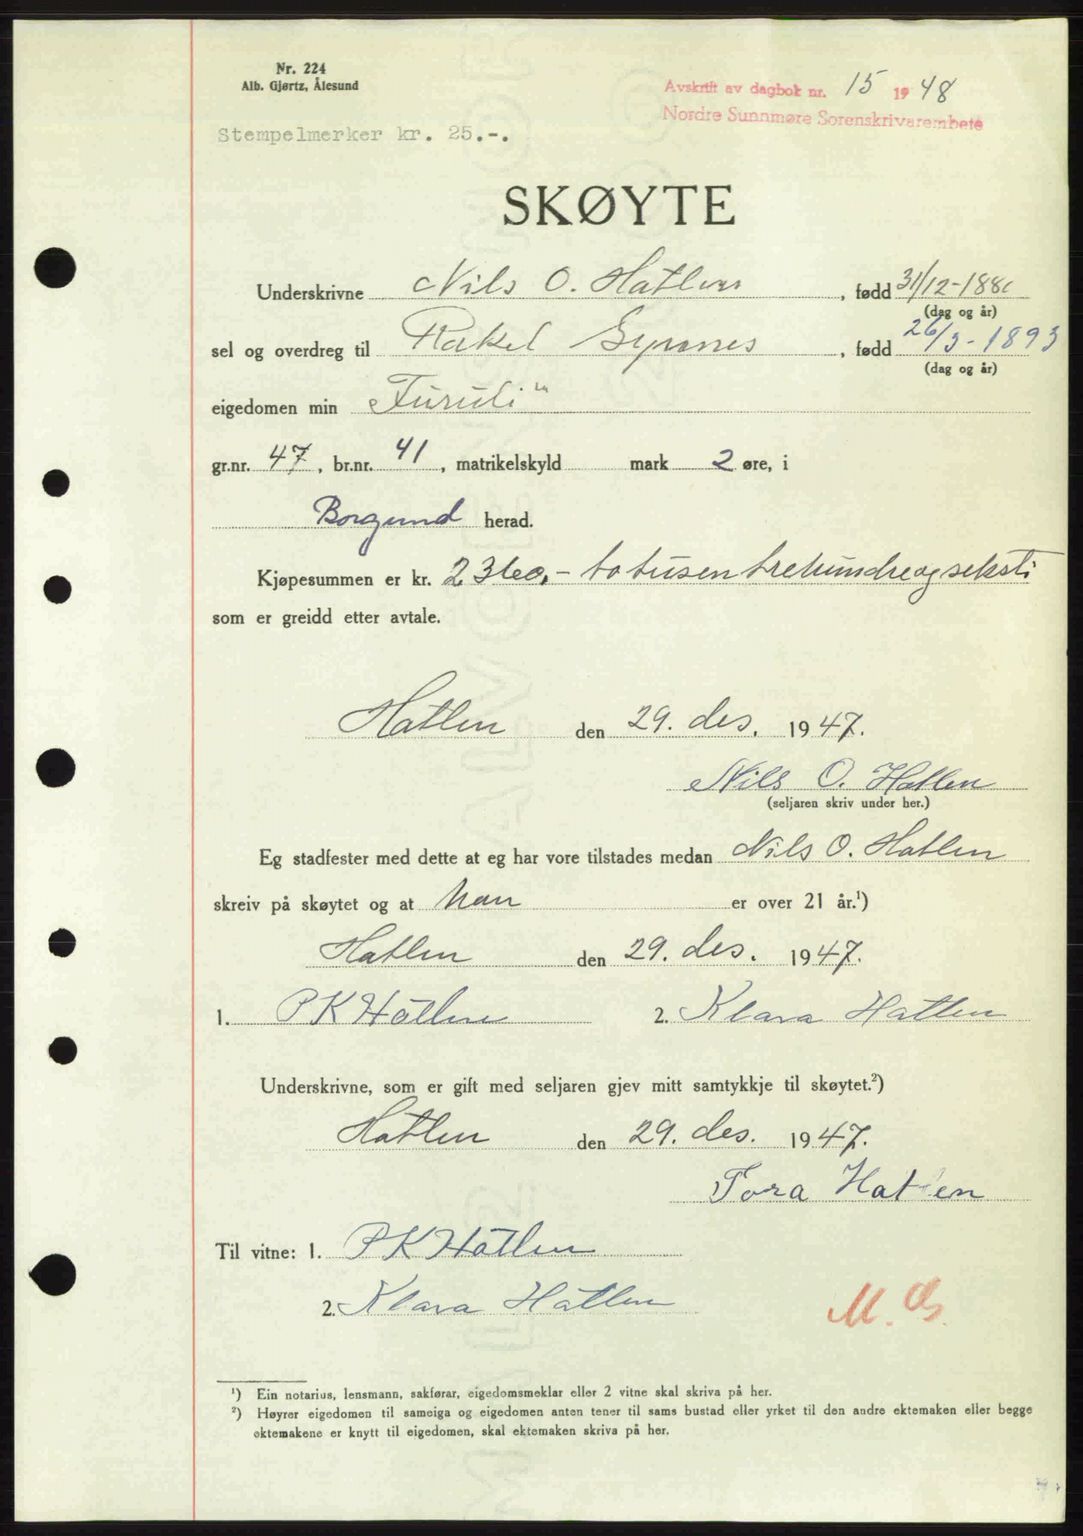 Nr. 224
Alb. Gjørtz, Ålesund
Avskrift av dagbok nr. 15 1948
Nordre Sunnmøre Sorenskrivarembete
Stempelmerker kr. 25.-.
SKØYTE
Underskrivne Nils O. Hatlen, fødd 31/12-188
(dag og år)
sel og overdreg til Rakel Gymnes, fødd 26/3-1893
(dag og år)
eigedomen min Furuli"
gr.nr. 47, br.nr. 41, matrikelskyld mark 2 øre, i
Borgund herad.
Kjøpesummen er kr. 2360,- totusentrehundreogseksti
som er greidd etter avtale.
Hatlen den 29. des. 1947.
Nils O. Hatlen
(seljaren skriv under her.)
Eg stadfester med dette at eg har vore tilstades medan Nils O. Hatlen
skreiv på skøytet og at han er over 21 år.¹)
Hatlen den 29. des. 1947.
1. P K Hatlen 2. Klara Hatlen
Underskrivne, som er gift med seljaren gjev mitt samtykkje til skøytet.²)
Hatlen den 29. des. 1947.
Tora Hatlen
Til vitne: 1. P K Hatlen
2. Klara Hatlen
¹) Ein notarius, lensmann, sakførar, eigedomsmeklar eller 2 vitne skal skriva på her.
²) Høyrer eigedomen til sameiga og eigedomen anten tener til sams bustad eller yrket til den andre ektemaken eller begge
ektemakene er knytt til eigedomen, skal ektemaken skriva på her.